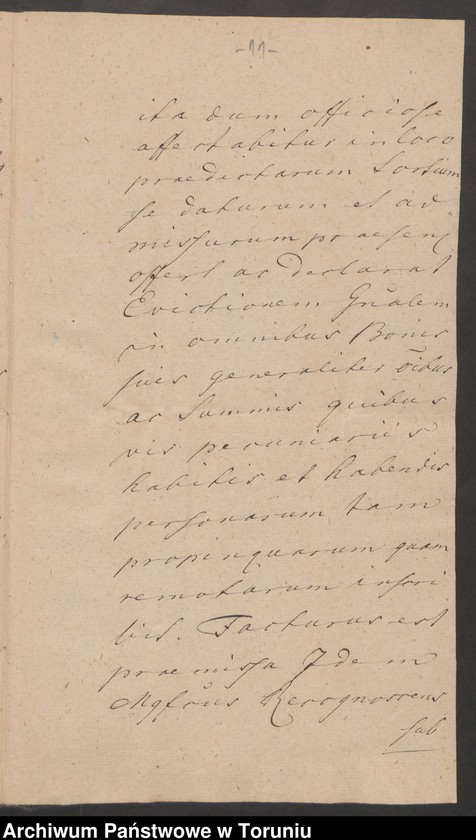 -11-
ita dum officiose
affectabitur in loco
praedictarum Sortium
se daturum et ad
missurum praesens
offert ac declarat
Evictionem Gnalem
in omnibus Bonis
suis generaliter oibus
ac Summis quibus
vis pecuniariis
habitis et habendis
personarum tam
propinquarum quam
remotarum inscri
bit. Facturus est
praemissa Idem
Mgfcus Recognoscens
sub
Archiwum Państwowe w Toruniu